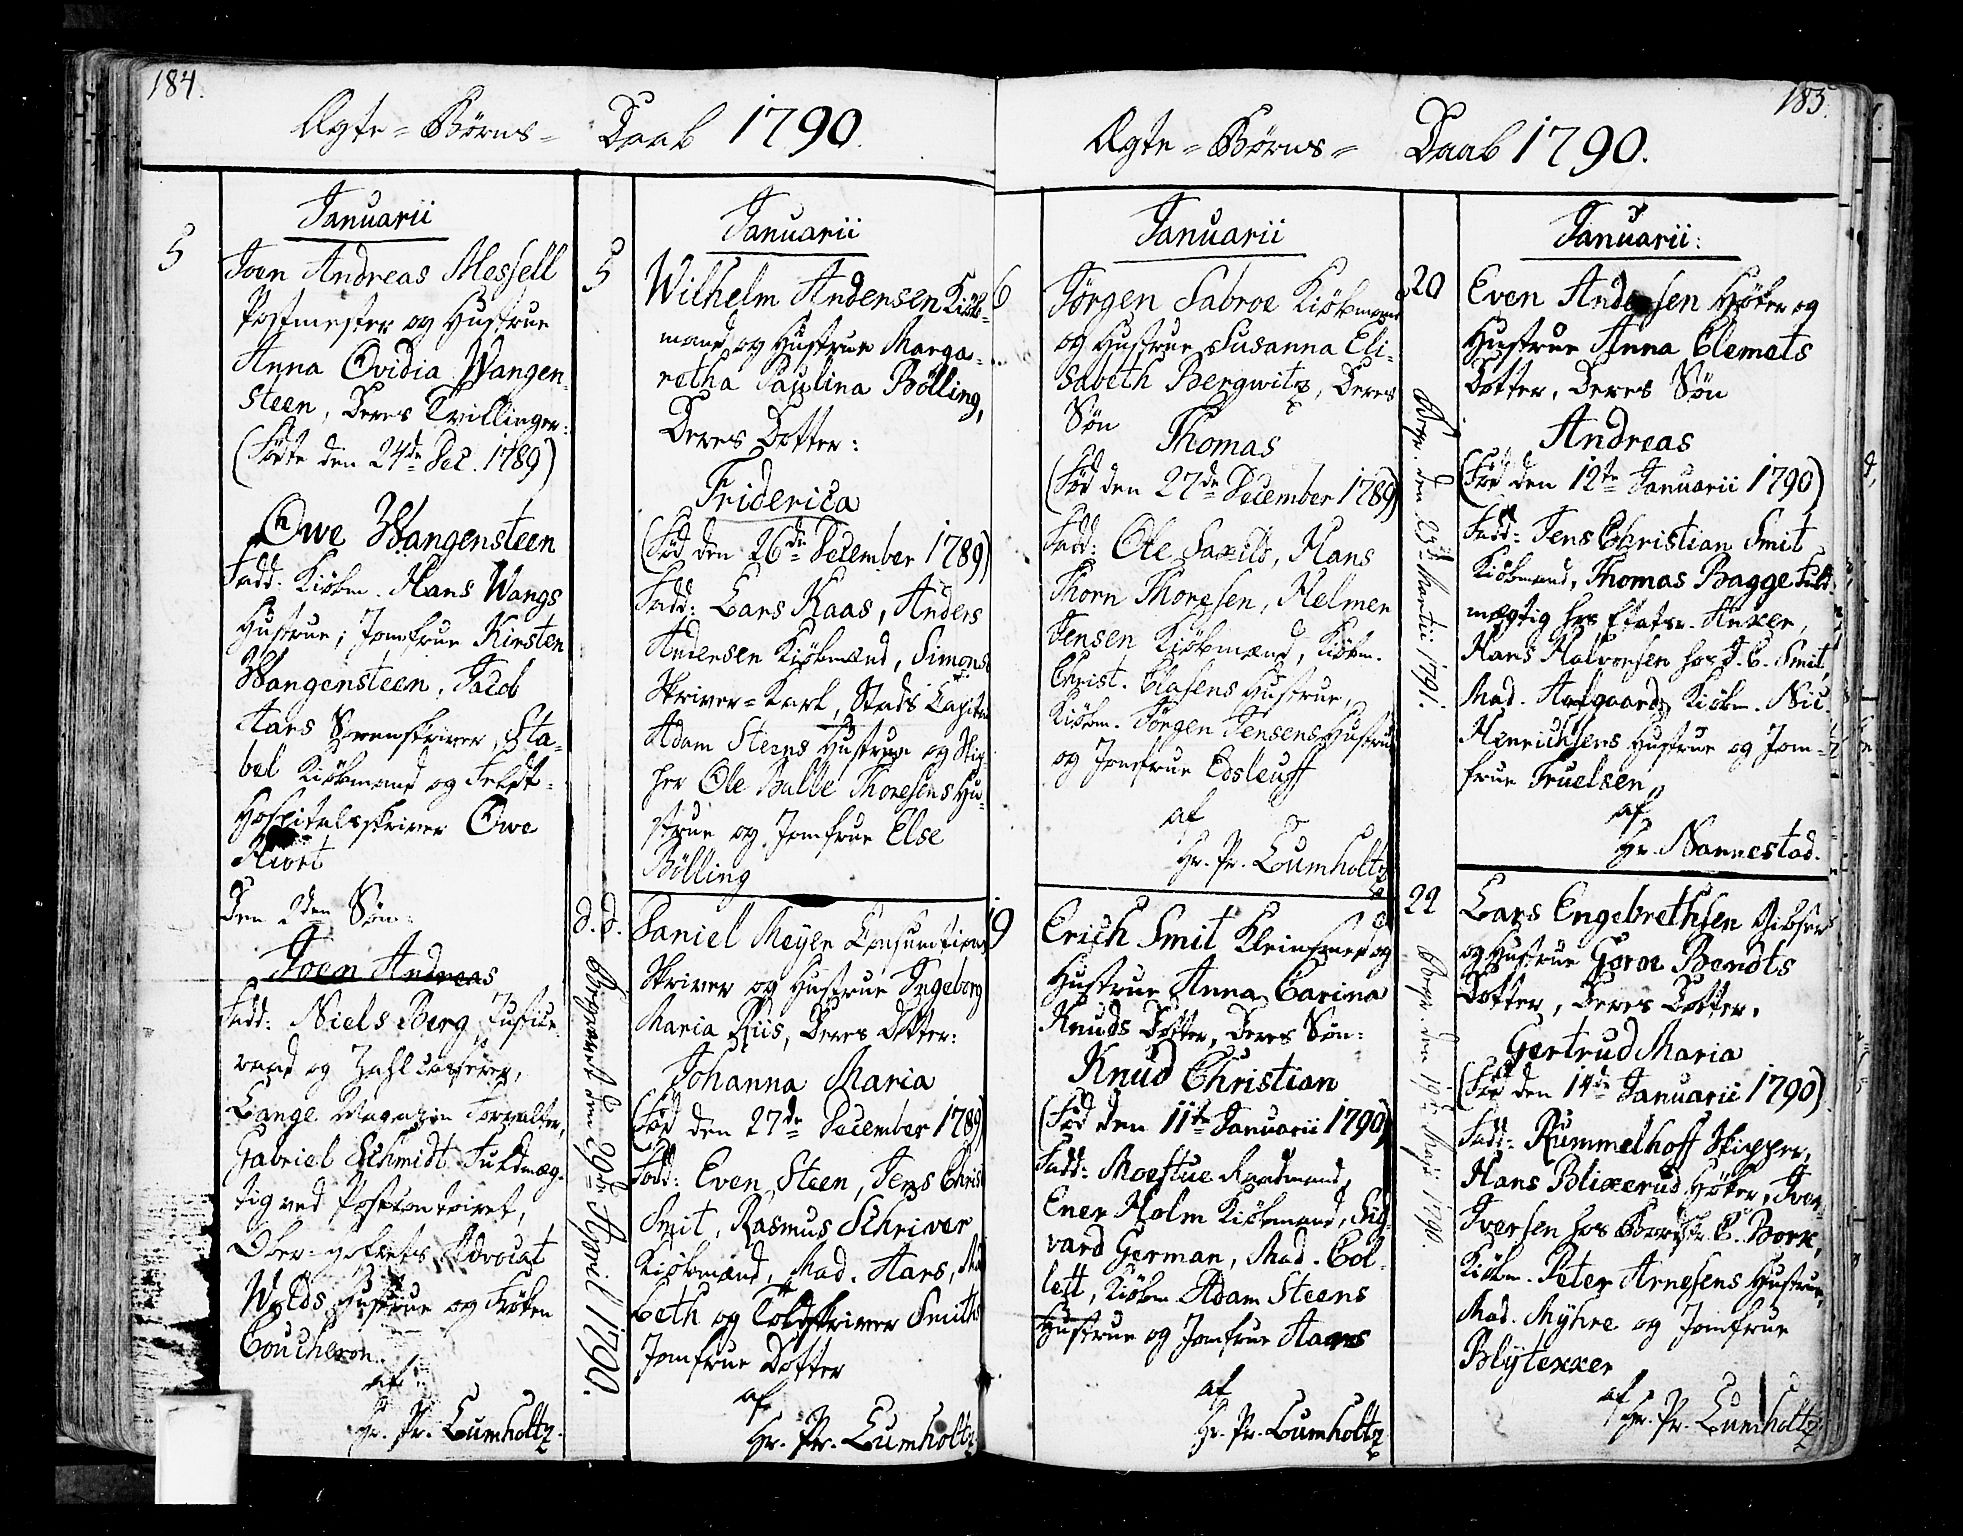 184.
Ægte = Børns = Daab 1790.
Januarii
5
Joen Andreas Messell
Postmester og Hustrue
Anna Ovidia Wangen-
steen, Deres Tvillinger:
(Födte den 24de Dec. 1789)
Owe Wangensteen
Fadd: Kiöbm. Hans Wangs
Hustrue, Jomfrue Kirsten
Wangensteen, Jacob
Aars Sorenskriver, Sta-
bel Kiöbmand og Feldt-
Hospitalsskriver Owe
Den 2den Søn:
Joen Andreas
Fadd: Niels Berg, Justice-
raad og Zahlcasserer,
Lange Magazin Forvalter,
Gabriel Schmidt Fuldmæg-
tig ved Postcontoiret,
Ober-Hofrets Advocat
Wylds Hustrue og Frøken
Coucheron
af
Hr. Pr. Lumholtz.
5
Januarii
Wilhelm Andersen Kiöb-
mand og Hustrue Marga-
retha Paulina Bölling,
Deres Dotter:
Friderica
(Fød den 26de December 1789)
Fadd: Lars Kaas, Anders
Andersen Kiöbmænd, Simons
Skriver-Karl, Stads Capit
Adam Steens Hustrue og
Ole Balle Thoresens Hu-
strue og Jomfrue Else
Bölling
d. d.
Begravet den 29de April 1790.
Daniel Meyer Consumtions
Skriver og Hustrue Ingeborg
Maria Riis, Deres Dotter:
Johanna Maria
(Fød den 27de December 1789)
Fadd: Even Steen, Jens Christ
Smit, Rasmus Schriver
Kiöbmænd, Mad. Aars, Mad
Leth og Toldskriver Smiths
Jomfrue Dotter
af
Hr. Pr. Lumholtz
185.
Ægte = Børns = Daab 1790.
6
Januarii
Jörgen Sabroe Kiöbmand
og Hustrue Susanna Eli-
sabeth Bergwitz, Deres
Søn
Thomas
(Fød den 27de December 1789)
Fadd: Ole Saxild, Hans
Thorn Thoresen, Helmer
Jensen Kiöbmænd, Kiöbm.
Christ. Clasens Hustrue,
Kiöbm. Jörgen Jensens Hustrue
og Jomfrue Edsleuff
af
Hr. Pr. Lumholtz
19
Erich Smit Kleinsmed og
Hustrue Anna Carina
Knuds Dotter, Deres Søn:
Knud Christian
(Fød den 11te Januarii 1790)
Fadd: Moestue Raadmand,
Ener Holm Kiöbmand, Sig-
vard German, Mad. Col-
lett, Kiöbm Adam Steens
Hustrue og Jomfrue Haars
af
Hr. Pr. Lumholtz
20
Begr. den 23de Martii 1791.
Januarii:
Even Andersen Høker og
Hustrue Anna Clemets
Dotter, Deres Søn
Andreas
(Fød den 12te Januarii 1790)
Fadd: Jens Christian Smit
Kiöbmand, Thomas Bagge Fuld-
mægtig hos Etatsr. Anker,
Hans Halvorsen hos J. C. Smit,
Mad. Aalgaard, Kiöbm. Nic.
Henrichsens Hustrue og Jom-
frue Truelsen
af
Hr. Nannestad.
22
Begr. den 19de Maji 1790.
Lars Engebrethsen
og Hustrue Goroe Bendts
Dotter, Deres Dotter.
Gertrud Maria
(Fød den 14de Januarii 1790)
Fadd: Rummelhoff Skipper,
Hans Blixerud Høker, Iver
Iversen hos C. Bork,
Kiöbm. Peter Arnesens Hustrue,
Mad. Myhre og Jomfrue
Blytekker
af
Hr. Pr. Lumholtz